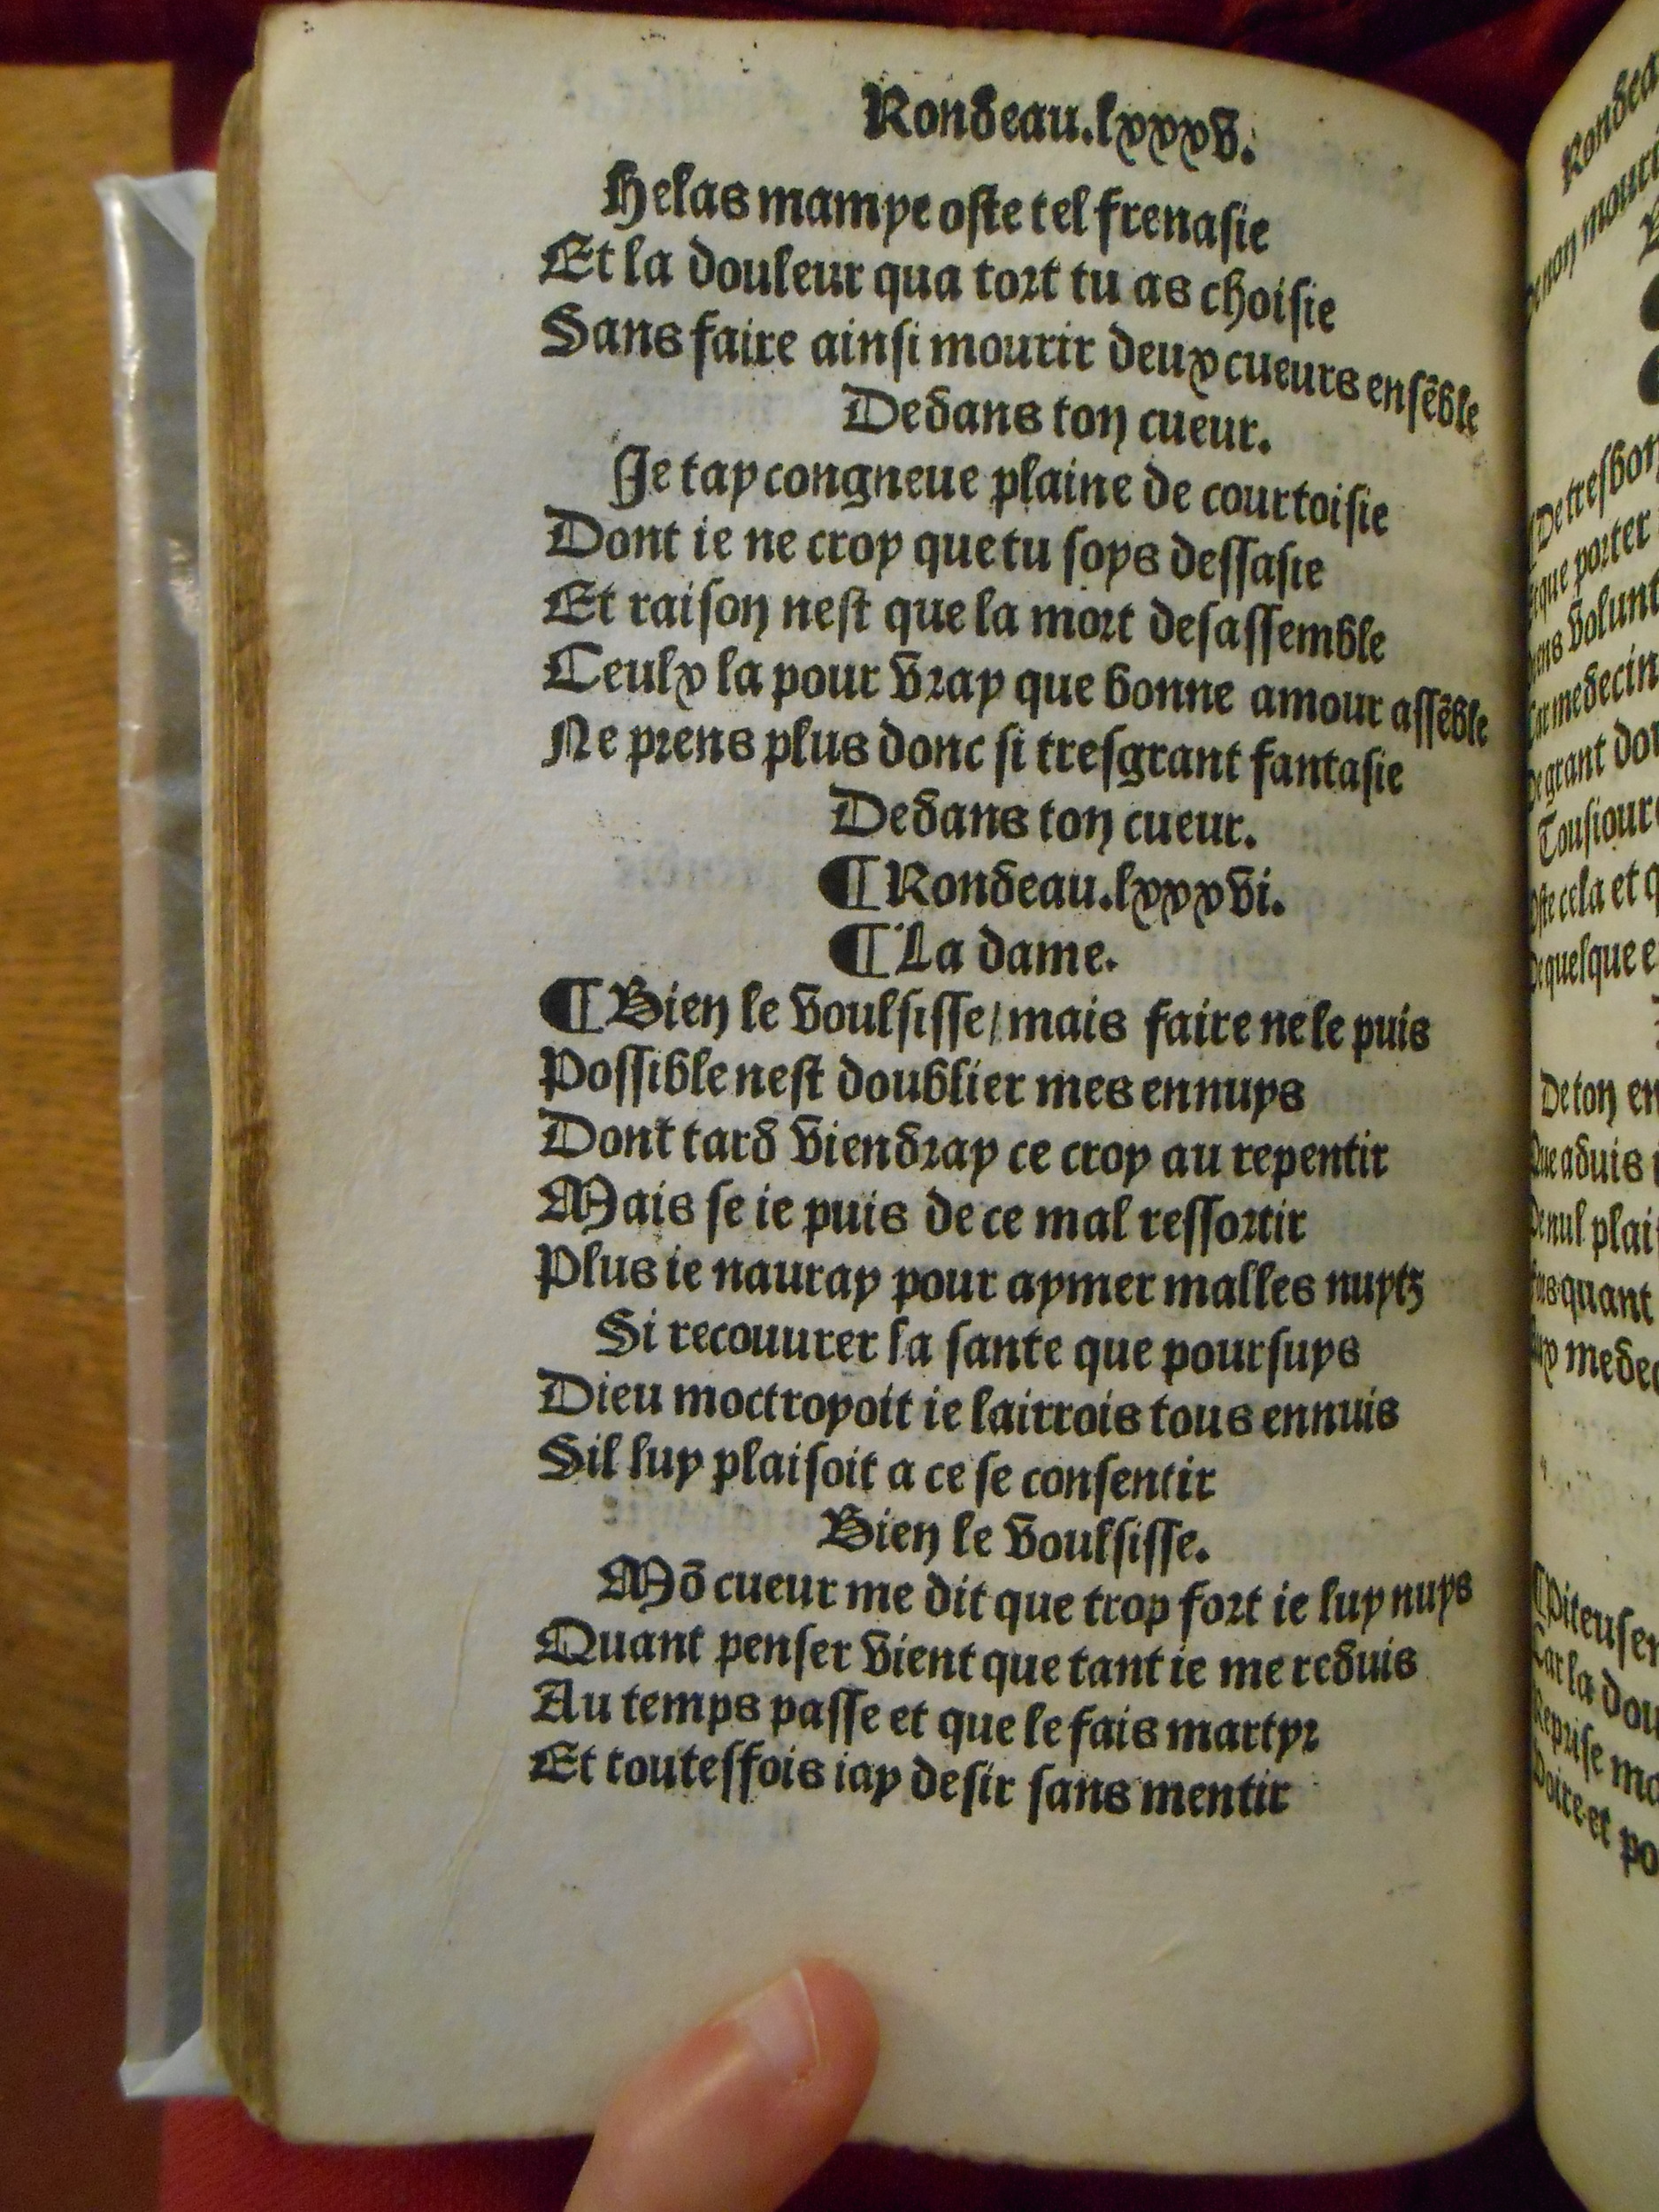 Rondeau.lxxxv.
Helas mamye oste tel frenasie
Et la douleur qua tort tu as choisie
Sans faire ainsi mourir deux cueurs ensẽble
Dedans ton cueur.
Je tay congneue plaine de courtoisie
Dont ie ne croy que tu soys dessasie
Et raison nest que la mort desassemble
Ceulx la pour vray que bonne amour assẽble
Ne prens plus donc si tresgrant fantasie
Dedans ton cueur.
¶Rondeau.lxxxvi.
¶La dame.
¶Bien le voulsisse/mais faire ne le puis
Possible nest doublier mes ennuys
Dont tard viendray ce croy au repentir
Mais se ie puis de ce mal ressortir
Plus ie nauray pour aymer malles nuytz
Si recouurer la sante que poursuys
Dieu moctroyoit ie lairrois tous ennuis
Sil luy plaisoit a ce se consentir
Bien le voulsisse.
Mõ cueur me dit que trop fort ie luy nuys
Quant penser vient que tant ie me reduis
Au temps passe et que le fais martyr
Et toutesfois iay desir sans mentir
De tresbon
que porter
volunt
medecin
grant
Tousiours
cela et q
quelque
De ton en
aduis
nul plai
quant
Piteusem
la dou
Reprise